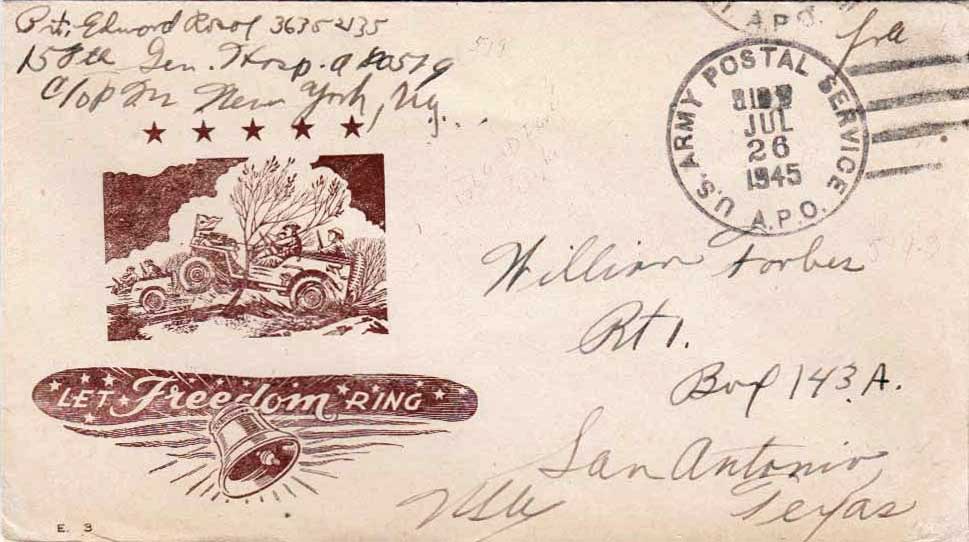 Pvt. Edward 36352135
158th Gen. Hosp. APO 519
c/o P.M. New York, N.Y.
Free
A.P.O.
U.S. ARMY POSTAL SERVICE
JUL
26
1945
A.P.O.
William Forbes
Rt 1.
Box 143A.
San Antonio
Texas
LET Freedom RING
E. 3